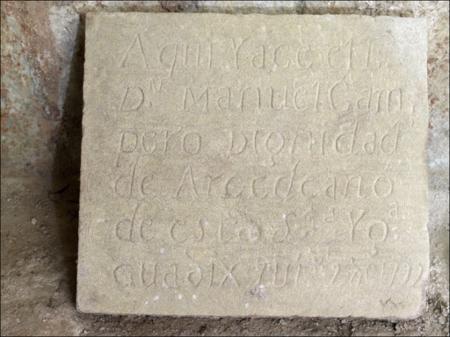 Aqui Yace el L.
Dn Manuel Cam
pero Dignidad
de Arcedeano
de esta Sta Yga
Guadix